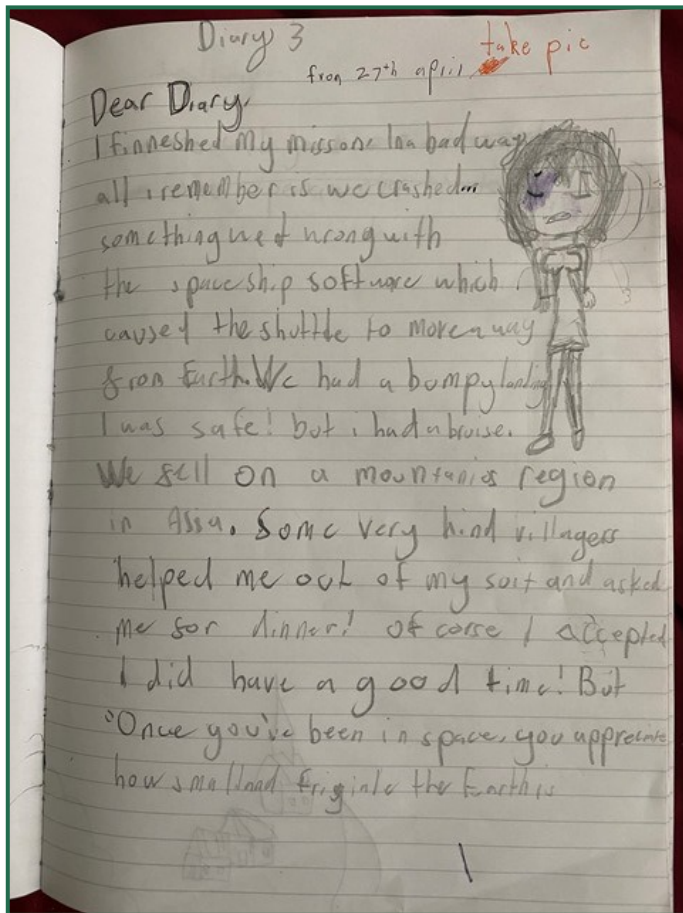 Diary 3
take pic
from 27th april
Dear Diary,
I finneshed my misson. In a bad way
all i remember is we crashed...
something wet wrong with
the spaceship software which
caused the shuttle to move away
from Earth. We had a bumpy landing
I was safe! but i had a bruise.
We fell on a mountanios region
in Assa. Some very kind villagers
helped me out of my suit and asked
me for dinner! Of corse I accepted
I did have a good time! But
"Once you've been in space, you appreciate
how small and frigiale the Earth is